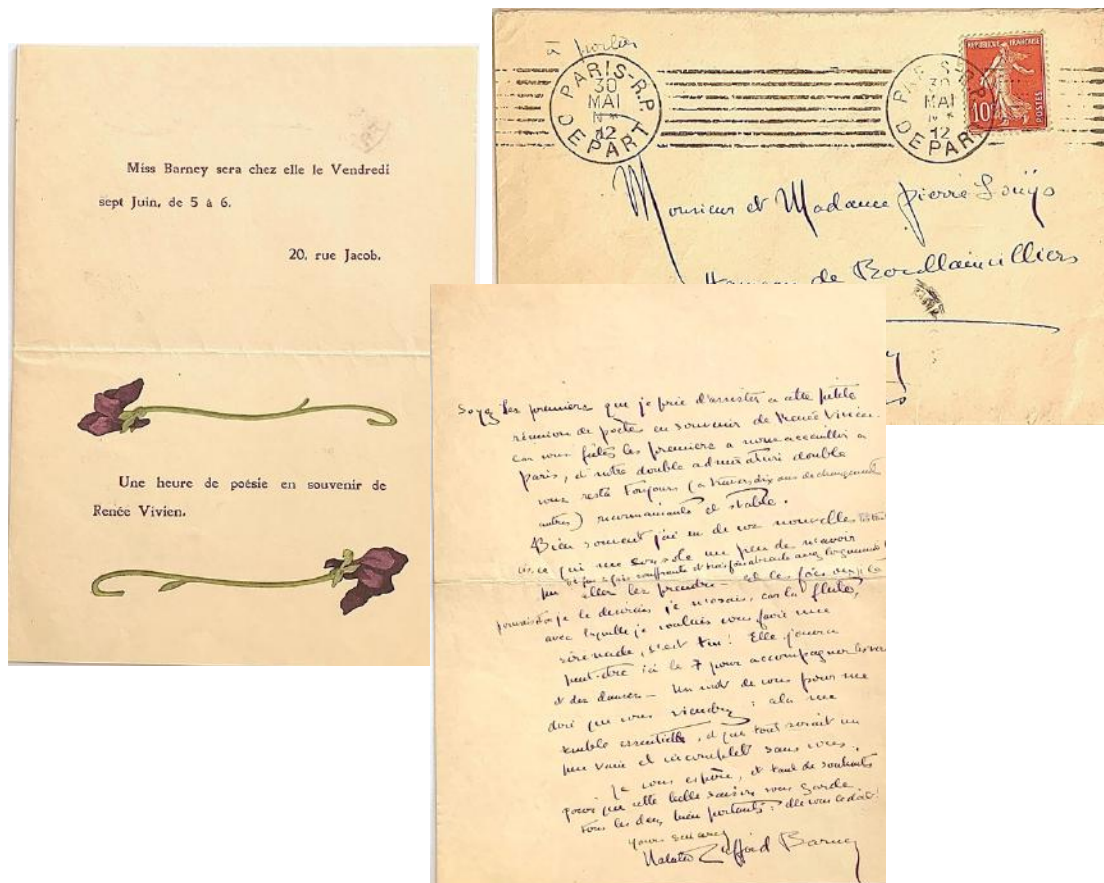 Miss Barney sera chez elle le Vendredi
sept Juin, de 5 à 6.
20, rue Jacob.
Une heure de poésie en souvenir de
Renée Vivien.
PARIS-R.P.
30
MAI
12
DEPART
30
MAI
12
DEPART
REPUBLIQUE FRANCAISE
10
POSTES
Monsieur et Madame Pierre Louÿs
de Boullainvilliers
Soyez les premiers que je prie d'assister a cette petite
réunion de poète en souvenir de Renée Vivien.
car vous fûtes les premiers a nous accueillir a
paris, et notre double admiration double
vous reste toujours (a travers dix ans de changements
autres) reconnaissante et stable.
Bien souvent j'ai eu de vos nouvelles
ce qui me console un peu de n'avoir
pu aller les prendre — et les fois
je le désirais je n'osais, car la flute,
avec laquelle je voulais vous faire une
sérénade, s'est tue! Elle jouera
peut-être ici le 7 pour accompagner
et des danses — Un mot de vous pour me
dire que vous viendrez : cela me
semble essentielle, et que tout serait un
peu vain et incomplet sans vous.
Je vous espère, et tant de souhaits
pour que cette belle saison vous garde
tous les deux bien portants : elle vous le doit!
Yours
Natalie Clifford Barney